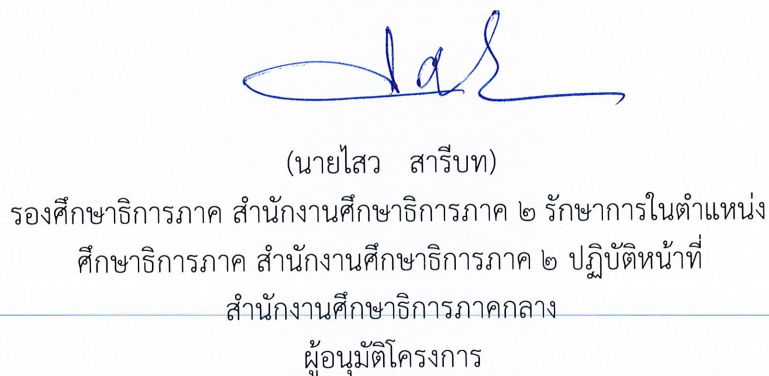 (นายไสว สารีบท)
รองศึกษาธิการภาค สำนักงานศึกษาธิการภาค ๒ รักษาการในตำแหน่ง
ศึกษาธิการภาค สำนักงานศึกษาธิการภาค ๒ ปฏิบัติหน้าที่
สำนักงานศึกษาธิการภาคกลาง
ผู้อนุมัติโครงการ